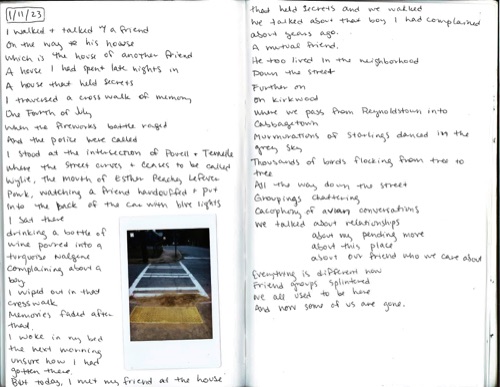 1/11/23
I walked + talked w/ a friend
On the way to his house
which is the house of another friend
A house I had spent late nights in
A house that held secrets
I traversed a crosswalk of memory
One Fourth of July
When the fireworks battle raged
And the police were called
I stood at the intersection of Powell + Tennelle
where the street curves + ceases to be called
Wylie, the mouth of Esther Peachy Lefever
Park, watching a friend handcuffed + put
into the back of the car with blue lights
I sat there
drinking a bottle of
wine poured into a
turquoise nalgene
complaining about a
boy.
I wiped out in that
crosswalk
Memories faded after
that.
I woke in my bed
the next morning
unsure how I had
gotten there.
But today, I met my friend at the house
that held secrets and we walked
We talked about that boy I had complained
about years ago.
A mutual friend.
He too lived in the neighborhood
Down the street
Further on
On Kirkwood
Where we pass from Reynoldstown into
Cabbagetown
Murmurations of Starlings danced in the
grey sky
Thousands of birds flocking from tree to
tree
All the way down the street
Groupings chattering
Cacophony of avian conversations
We talked about relationships
about my pending move
about this place
about our friend who we care about
Everything is different now
Friend groups splintered
We all used to be here
And now some of us are gone.